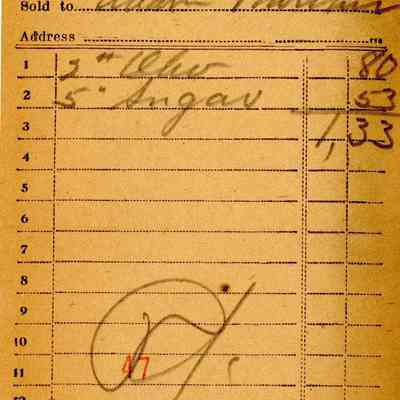 Sold to
Address
1 2" Oleo 80
2 5" Sugar 53
3 1,33
4
5
6
7
8
9
10
11 47
12